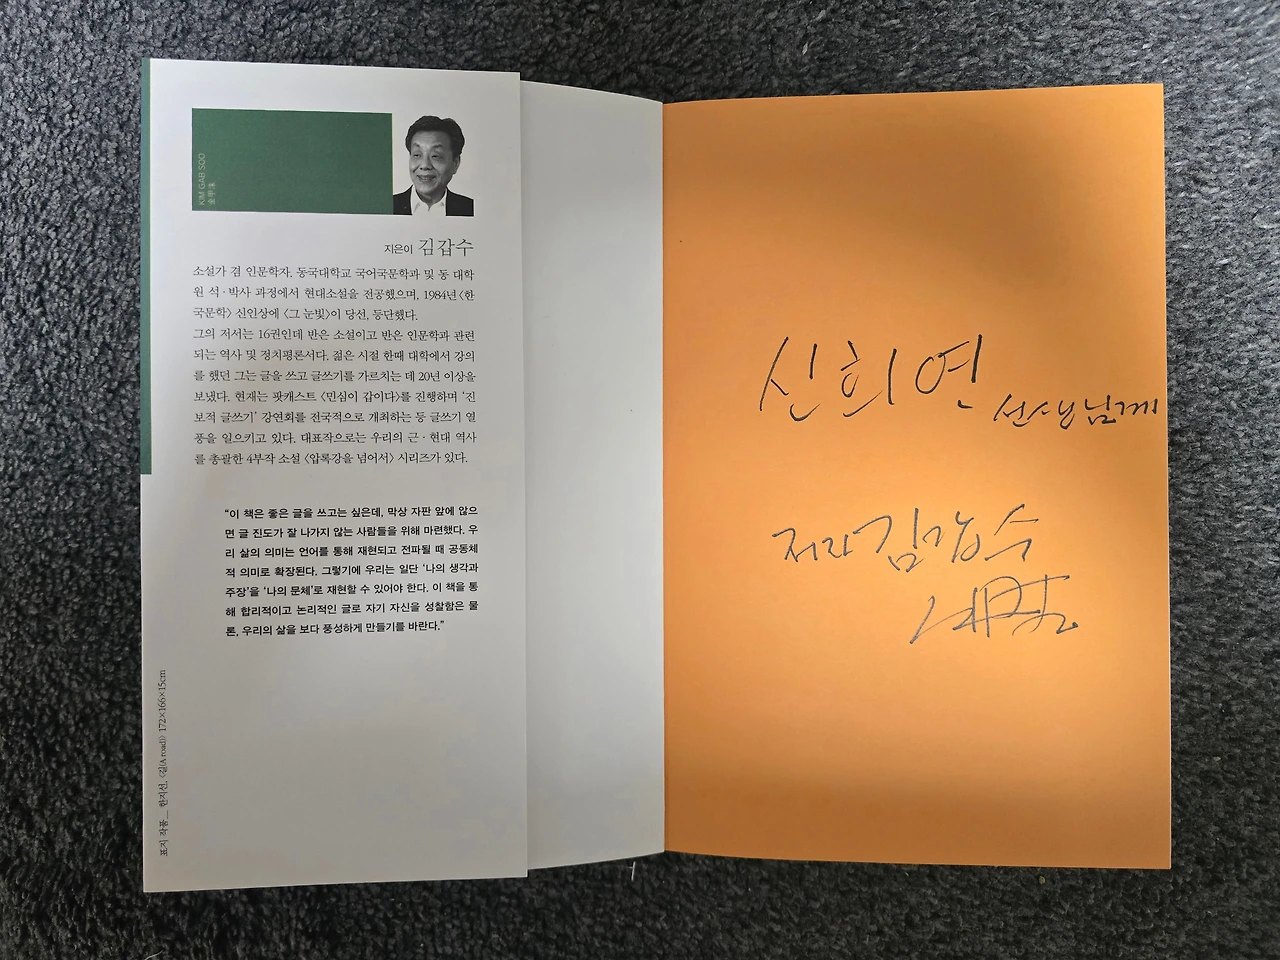 KIM GAB SOO
金甲洙
지은이 김갑수
소설가 겸 인문학자. 동국대학교 국어국문학과 및 동 대학
원 석·박사 과정에서 현대소설을 전공했으며, 1984년 〈한
국문학〉 신인상에 〈그 눈빛〉이 당선, 등단했다.
그의 저서는 16권인데 반은 소설이고 반은 인문학과 관련
되는 역사 및 정치평론서다. 젊은 시절 한때 대학에서 강의
를 했던 그는 글을 쓰고 글쓰기를 가르치는 데 20년 이상을
보냈다. 현재는 팟캐스트 〈민심이 갑이다〉를 진행하며 ‘진
보적 글쓰기’ 강연회를 전국적으로 개최하는 등 글쓰기 열
풍을 일으키고 있다. 대표작으로는 우리의 근·현대 역사
를 총괄한 4부작 소설 〈압록강을 넘어서〉 시리즈가 있다.
“이 책은 좋은 글을 쓰고는 싶은데, 막상 자판 앞에 앉으
면 글 진도가 잘 나가지 않는 사람들을 위해 마련했다. 우
리 삶의 의미는 언어를 통해 재현되고 전파될 때 공동체
적 의미로 확장된다. 그렇기에 우리는 일단 ‘나의 생각과
주장’을 ‘나의 문체’로 재현할 수 있어야 한다. 이 책을 통
해 합리적이고 논리적인 글로 자기 자신을 성찰함은 물
론, 우리의 삶을 보다 풍성하게 만들기를 바란다.”
표지 작품__ 한지선, 〈길(A road)〉 172×166×15cm
신희연 선생님께
저자 김갑수